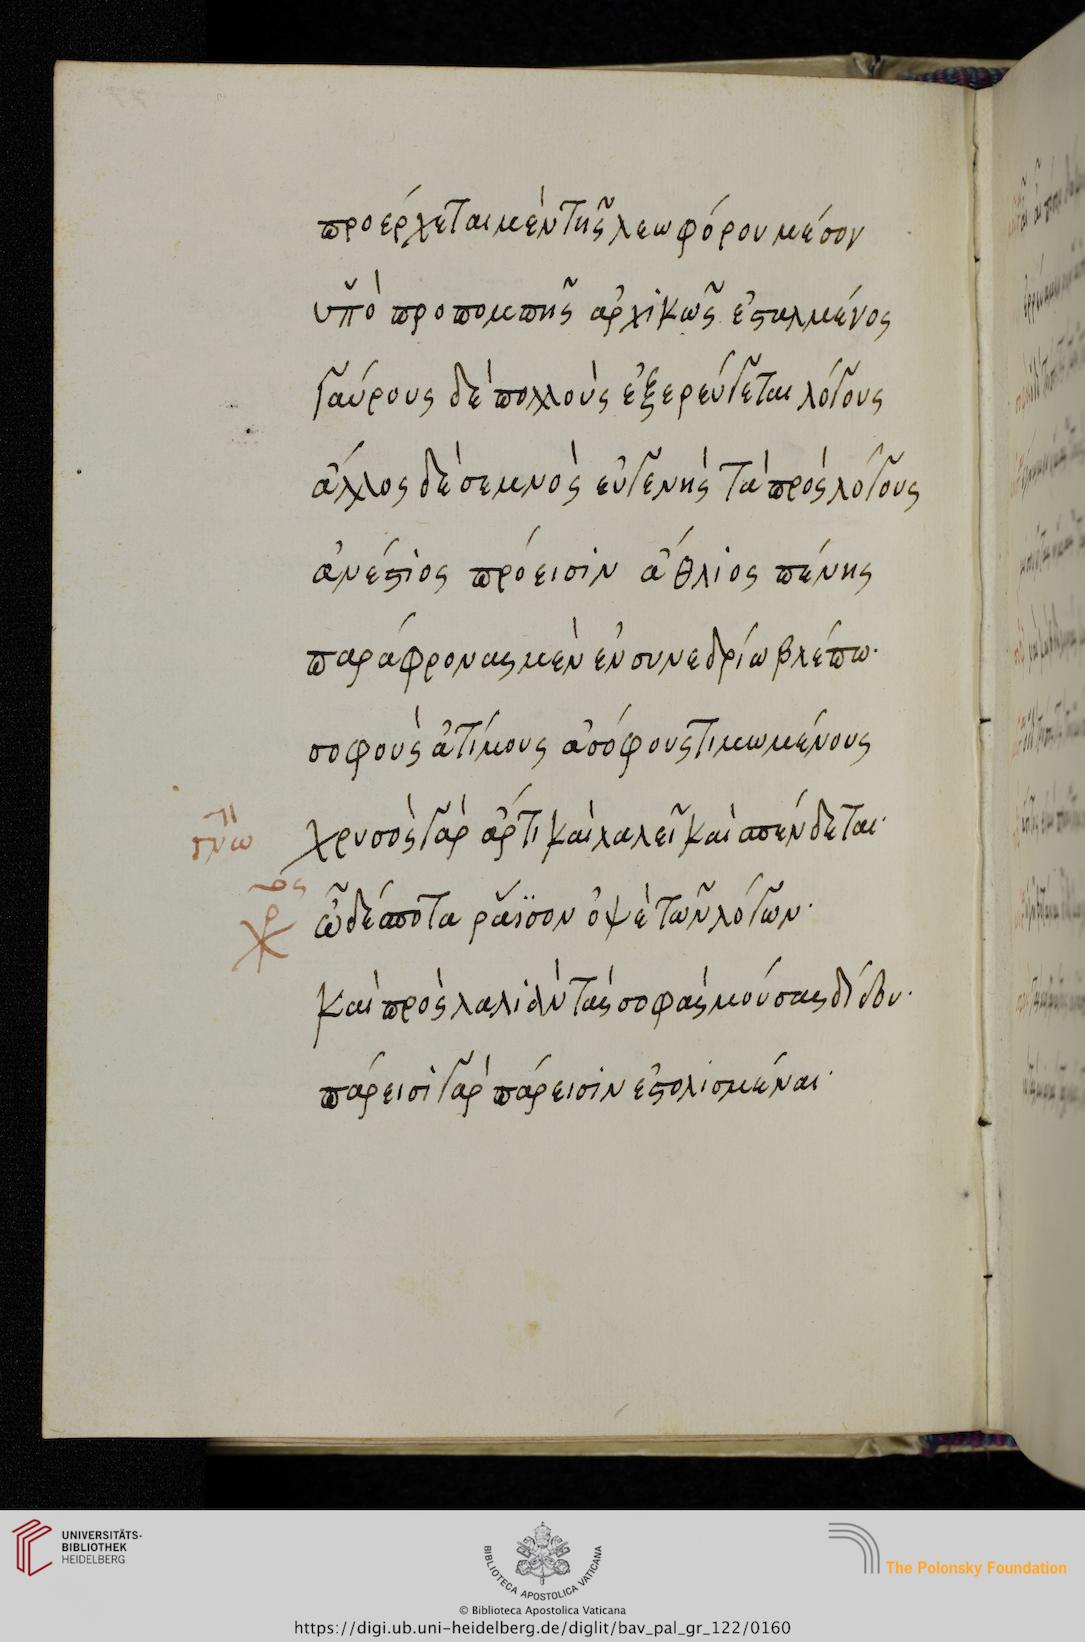 προέρχεται μὲν τῆς λεωφόρου μέσον
ὑπὸ προπομπῆς ἀρχικῶς ἐσταλμένος
γαύρους δὲ πολλοὺς ἐξερεύγεται λόγους
ἄλλος δὲ σεμνὸς εὐγενὴς τὰ πρὸς λόγους
ἀνέστιος πρόεισιν ἄθλιος πένης
παράφρονας μὲν ἐν συνεδρίω βλέπω·
σοφοὺς ἀτίμους ἀσόφους τιμωμένους
χρυσὸς γὰρ ἄρτι καὶ λαλεῖ καὶ σπένδεται·
ὦ δέσποτα ρᾶϊσον ὀψὲ τῶν λόγων·
καὶ πρὸς λαλιὰν τὰς σοφὰς μούσας δίδου·
πάρεισι γὰρ πάρεισιν ἐστολισμέναι·
UNIVERSITÄTS-
BIBLIOTHEK
HEIDELBERG
BIBLIOTECA APOSTOLICA VATICANA
The Polonsky Foundation
© Biblioteca Apostolica Vaticana
https://digi.ub.uni-heidelberg.de/diglit/bav_pal_gr_122/0160